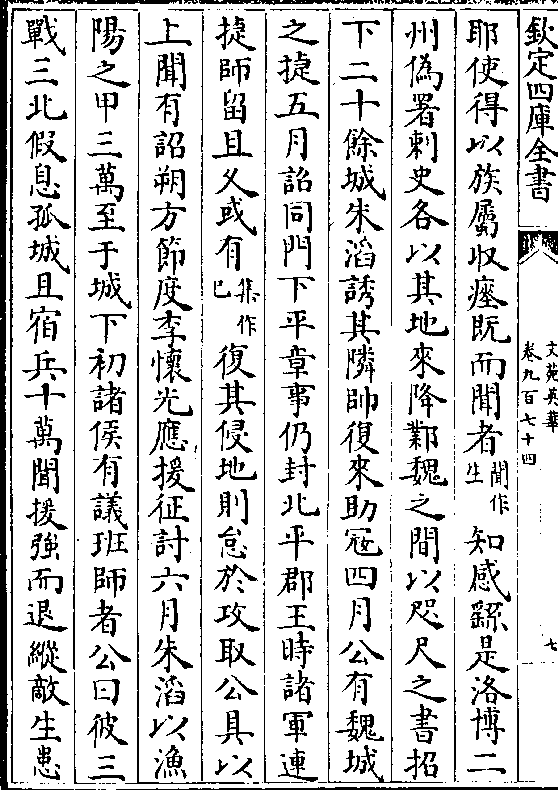 欽定四庫全書
文苑英華
卷九百七十四
七
耶使得以族屬収瘞既而聞者聞作生知感繇是洛博二
州偽署刺史各以其地來降鄴魏之間以咫尺之書招
下二十餘城朱滔誘其隣帥復來助冦四月公有魏城
之捷五月詔同門下平章事仍封北平郡王時諸軍連
捷師留且乆或有集作已復其侵地則怠於攻取公具以
上聞有詔朔方節度李懷光應援征討六月朱滔以漁
陽之甲三萬至于城下初諸侯有議班師者公曰彼三
戰三北假息孤城且宿兵十萬聞援強而退縱敵生患